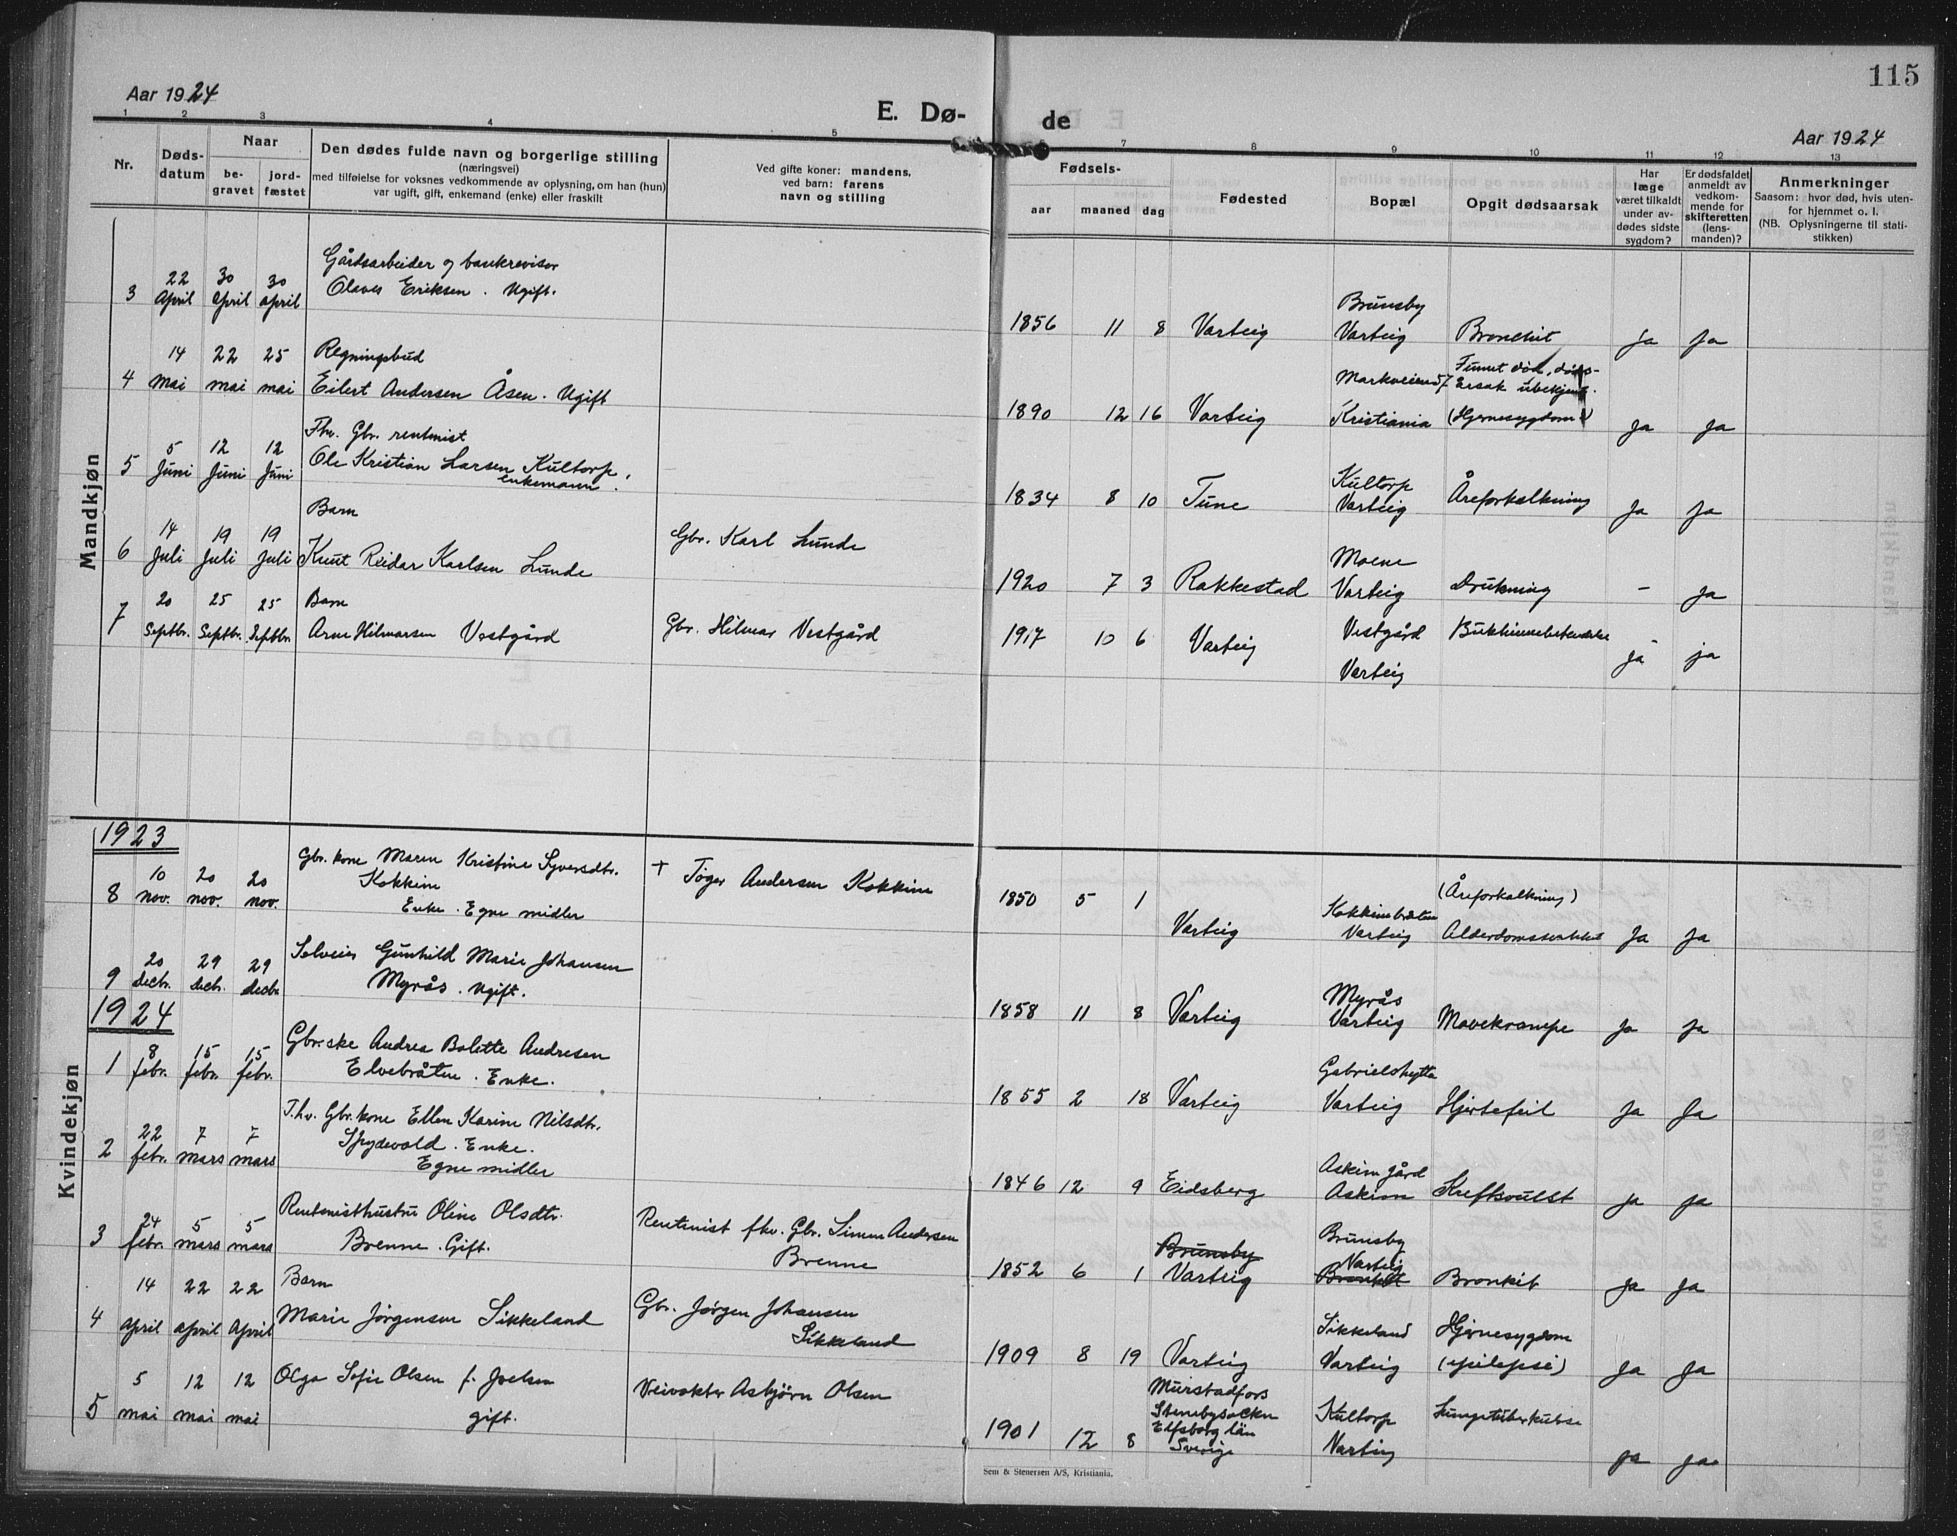 115
Aar 1924
E. Dø-
de
Aar 1924
1 2 3 4 5 7 8 9 10 11 12 13
Nr.
Døds-
datum
Naar
be-
gravet
jord-
fæstet
Den dødes fulde navn og borgerlige stilling
(næringsvei)
med tilføielse for voksnes vedkommende av oplysning, om han (hun)
var ugift, gift, enkemand (enke) eller fraskilt
Ved gifte koner: mandens,
ved barn: farens
navn og stilling
Fødsels-
aar maaned dag
Fødested
Bopæl
Opgit dødsaarsak
Har
læge
været tilkaldt
under av-
dødes sidste
sygdom?
Er dødsfaldet
anmeldt av
vedkom-
mende for
skifteretten
(lens-
manden)?
Anmerkninger
Saasom: hvor død, hvis uten-
for hjemmet o. l.
(NB. Oplysningerne til stati-
stikken)
Mandkjøn
3
22 April
30 april
30 april
Gårdsarbeider og bankrevisor
Olaves Eriksen. Ugift.
1856 11 8 Varteig
Brunsby
Varteig
Bronchit
ja ja
4
14 mai
22 mai
25 mai
Regningsbud
Eilert Andersen Åsen. Ugift
1890 12 16 Varteig
Markveien 57
Kristiania
Funnet død, døds-
årsak ubekjent.
(Hjernesygdom)
ja ja
5
5 Juni
12 Juni
12 Juni
Fhv. Gbr. rentenist
Ole Kristian Larsen Kultorp,
enkemann.
1834 8 10 Tune
Kultorp
Varteig
Åreforkalkning
ja ja
6
14 Juli
19 Juli
19 Juli
Barn
Knut Reidar Karlsen Lunde
Gbr. Karl Lunde
1920 7 3 Rakkestad
Moene
Varteig
Drukning
- ja
7
20 Septbr.
25 Septbr.
25 Septbr.
Barn
Arne Hilmarsen Vestgård
Gbr. Hilmar Vestgård
1917 10 6 Varteig
Vestgård
Varteig
Bukhinnebetendelse
ja ja
Kvindekjøn
1923
8
10 nov.
20 nov.
20 nov.
Gbr. kone Maren Kristine Syversdtr.
Kokkim
Enke. Egne midler
+ Tøger Andersen Kokkim
1850 5 1
Varteig
Kokkimbråten
Varteig
(Åreforkalkning)
Alderdomssvakhet
ja ja
9
20 decbr.
29 decbr.
29 decbr.
Solveien Gunhild Marie Johansen
Myrås. Ugift.
1858 11 8 Varteig
Myrås
Varteig
Mavekrampe
ja ja
1924
1
8 febr.
15 febr.
15 febr.
Gbr.ske Andrea Bolette Andresen
Elvebråten. Enke.
1855 2 18 Varteig
Gabrielshytta
Varteig
Hjertefeil
ja ja
2
22 febr.
7 mars
7 mars
T.hv. Gbr. kone Ellen Karine Nilsdtr.
Spydevold. Enke.
Egne midler
1846 12 9 Eidsberg
Askim gård
Askim
Kreftsvulst
ja ja
3
24 febr.
5 mars
5 mars
Rentenisthustru Oline Olsdtr.
Brenne. Gift.
Rentenist fhv. Gbr. Simen Andersen
Brenne
1852 6 1
Brunsby
Varteig
Brunsby
Varteig
Bronkit
Bronkit
ja ja
4
14 april
22 april
22 April
Barn
Marie Jørgensen Sikkeland
Gbr. Jørgen Johansen
Sikkeland
1909 8 19 Varteig
Sikkeland
Varteig
Hjernesygdom
(epilepsi)
ja ja
5
5 mai
12 mai
12 mai
Olga Sofie Olsen f. Joelsen
gift.
Veivokter Asbjørn Olsen
1901 12 8
Murstadfors
Stenebysockn
Elfsborg län
Sverige
Kultorp
Varteig
Lungetuberkulose
ja ja
Sem & Stenersen A/S, Kristiania.